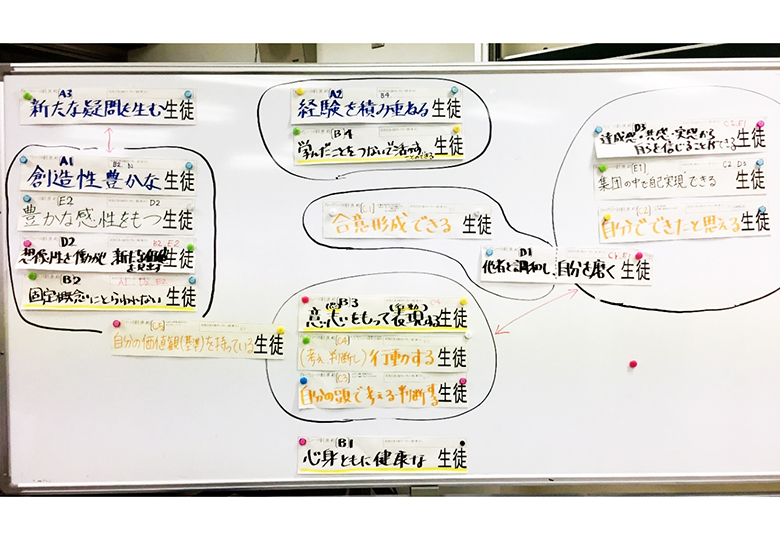 A3
新たな疑問を生む生徒
A1 B2
創造性豊かな生徒
E2 D2
豊かな感性をもつ生徒
D2 B2 E2
想像力を働かせ、新たな価値を見出す生徒
B2 A1
固定概念にとらわれない生徒
[C5]
自分の価値観(基準)を持っている生徒
A2 B4
経験を積み重ねる生徒
B4
学んだことをつないで活用することのできる生徒
[C1]
合意形成できる生徒
B3 C4
意思をもって表現する生徒
[C4]
(考え、判断し)行動する生徒
[C3]
自分の頭で考える・判断する生徒
B1
心身ともに健康な生徒
D3 C2.E1
達成感・共感・実感から自分を信じることができる生徒
[E1] C2 D3
集団の中で自己実現できる生徒
[C2]
自分でできたと思える生徒
D1
他者と調和し、自分を磨く生徒